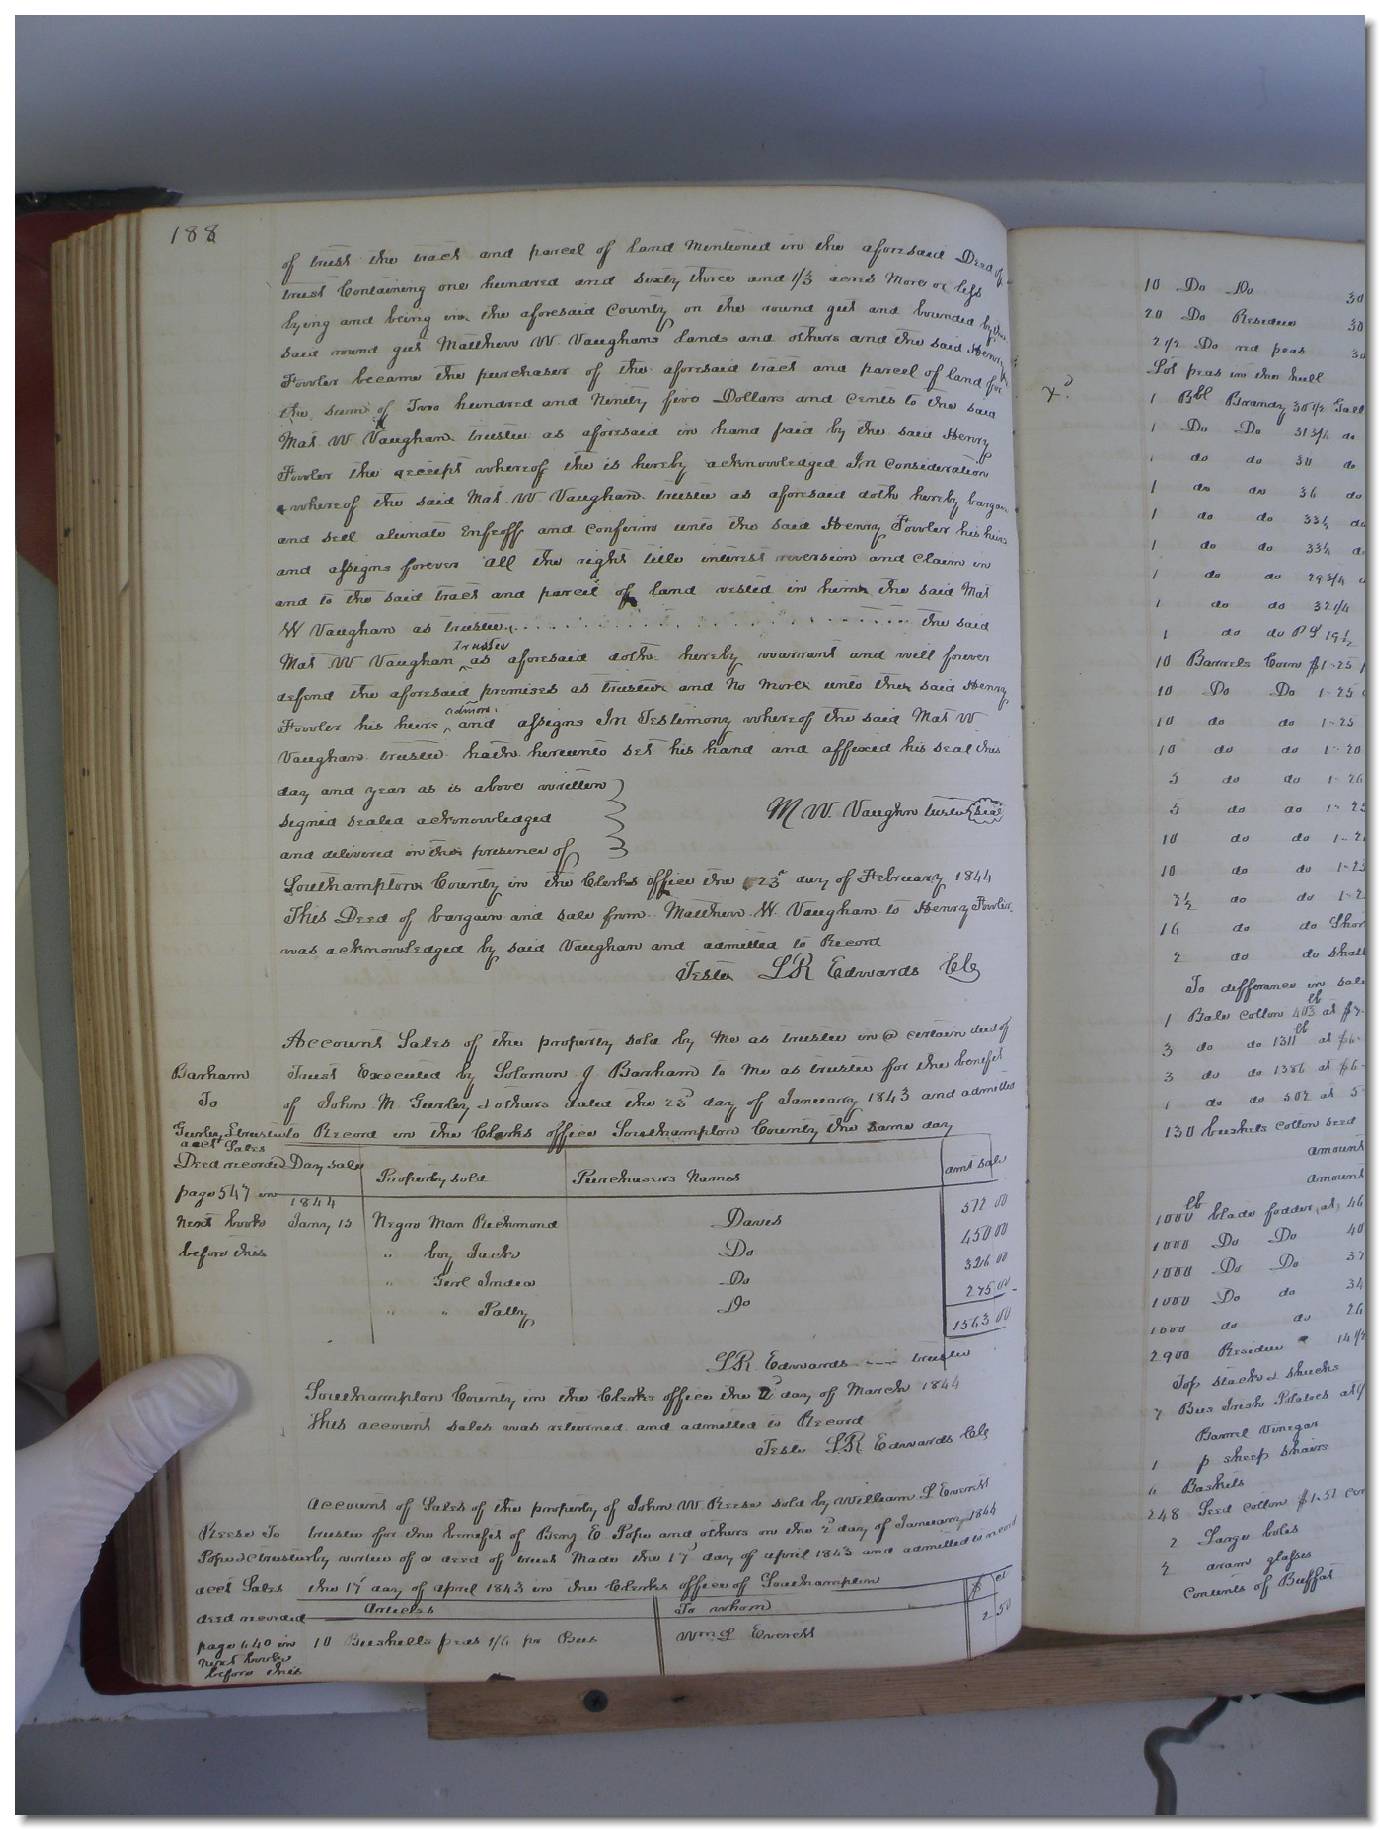 188
of trust the tract and parcel of land Mentioned in the aforesaid Deed of
trust Containing one hundred and sixty three and 1/3 acres More or less
lying and being in the aforesaid County on the round gut and bounded by the
said round gut Matthew W. Vaughans lands and others and the said Henry
Fowler became the purchaser of the aforesaid tract and parcel of land for
the sum of Two hundred and Ninety five Dollars and cents to the said
Mat W Vaughan trustee as aforesaid in hand paid by the said Henry
Fowler the receipt whereof the is hereby acknowledged In Consideration
whereof the said Mat. W Vaughan trustee as aforesaid doth hereby bargain
and sell alienate Enfeoff and Confirm unto the said Henry Fowler his heirs
and assigns forever all the right title interest reversion and Claim in
and to the said tract and parcel of land vested in him the said Mat
W Vaughan as trustee the said
Mat W Vaughan trustee as aforesaid doth hereby warrant and will forever
defend the aforesaid premises as trustee and No More unto the said Henry
Fowler his heirs, admors. and assigns In Testimony whereof the said Mat W
Vaughan trustee hath hereunto set his hand and affixed his seal this
day and year as is above written
signed sealed acknowledged
and delivered in the presence of
M W. Vaughn trustee seal
Southampton County in the Clerks office the 23d day of February 1844
This Deed of bargain and sale from Matthew W. Vaughan to Henry Fowler
was acknowledged by said Vaughan and admitted to Record
Teste LR Edwards Clk
Account Sales of the property sold by Me as trustee in a certain deed of
Barham trust Executed by Solomon J Barham to Me as trustee for the benefit
To of John M. Gurley & others dated the 23d day of January 1843 and admitted
Gurley &trustee to Record in the Clerks office Southampton County the same day
acct Sales
Deed recorded Day sale Property sold Purchasers Names amt sale
page 547 in 1844 572 00
Next book Jany 15 Negro Man Richmond Daves 450 00
before this " boy Jack Do 326 00
" Girl India Do 275 00
" " Patty Do 1563 00
LR Edwards trustee
Southampton County in the Clerks office the 2d day of March 1844
This account sales was returned and admitted to Record
Teste LR Edwards Clk
Account of Sales of the property of John W. Reese sold by William L Everitt
Reese To trustee for the benefit of Benj E Pope and others on the 2d day of January 1844
Pope &c trustee by virtue of a deed of trust Made the 17d day of april 1843 and admitted to record
acct Sales the 17d day of april 1843 in the Clerks office of Southampton
deed recorded Articles To whom $ ct
page 440 in 10 Bushells peas 1/6 pr Bus Wm L Everett 2 50
next book
before this
10 Do Do 30
20 Do Residue 30
2 1/2 Do red peas 30
Lot peas in the hull
1 Bbl Brandy 30 1/2 Gall
1 Do Do 31 3/4 do
1 do do 30 do
1 do do 36 do
1 do do 33 1/2 do
1 do do 33 1/2 do
1 do do 29 3/4
1 do do 32 1/4
1 do do 19 1/2
10 Barrels Corn $1-25
10 Do Do 1-25
10 do do 1-25
10 do do 1-20
5 do do 1-26
5 do do 1-25
10 do do 1-2
10 do do 1-25
7 1/2 do do 1-2
16 do do Shor
2 do do shatt
To difference in sale
1 Bale cotton 403 lb at $7-
3 do do 1311 lb at $6-
3 do do 1386 at $6-
1 do do 502 at 5
130 bushels cotton seed
amount
amount
1000 lb blade fodder, at, 46
1000 Do Do 40
1000 Do Do 37
1000 Do do 34
1000 do do 26
2900 Residue 14 1/2
Top stacks & shucks
7 Bus Irish Potatoes at
Barrel Vinegar
1 p sheep shairs
4 Baskets
248 Seed cotton $1.51
2 Large boles
2 dram glasses
Contents of Buffat